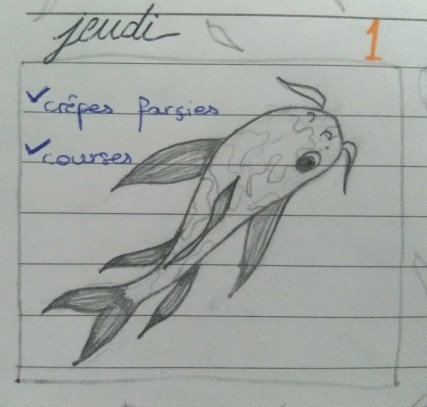 jeudi 1
✓crêpes fargies
✓courses